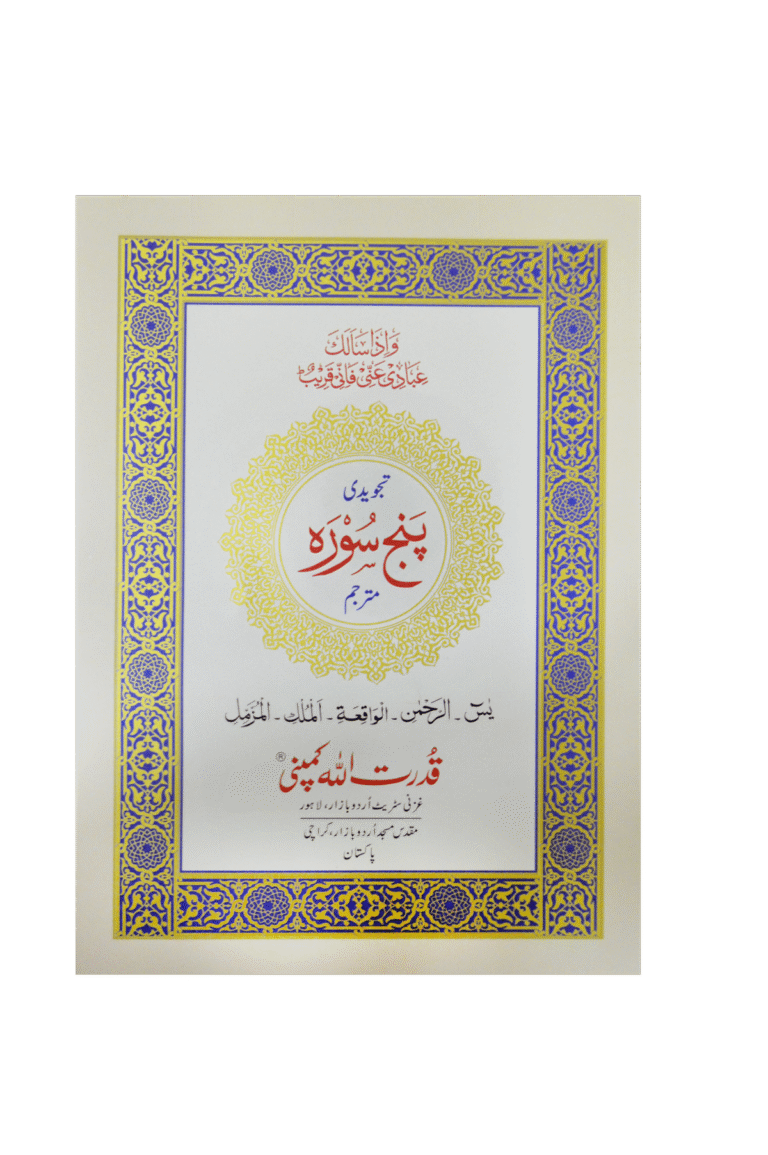 وَاِذَا سَاَلَكَ
عِبَادِیْ عَنِّیْ فَاِنِّیْ قَرِیْبٌ ؕ
تجویدی
پَنج سُوْرَہ
مترجم
یٰسٓ ۔ الرَّحْمٰن ۔ الْوَاقِعَةِ ۔ اَلْمُلْكِ ۔ الْمُزَّمِّلِ
قُدرت اللہ کمپنی ®
غزنی سٹریٹ اُردو بازار، لاہور
مقدس مسجد اُردو بازار، کراچی
پاکستان